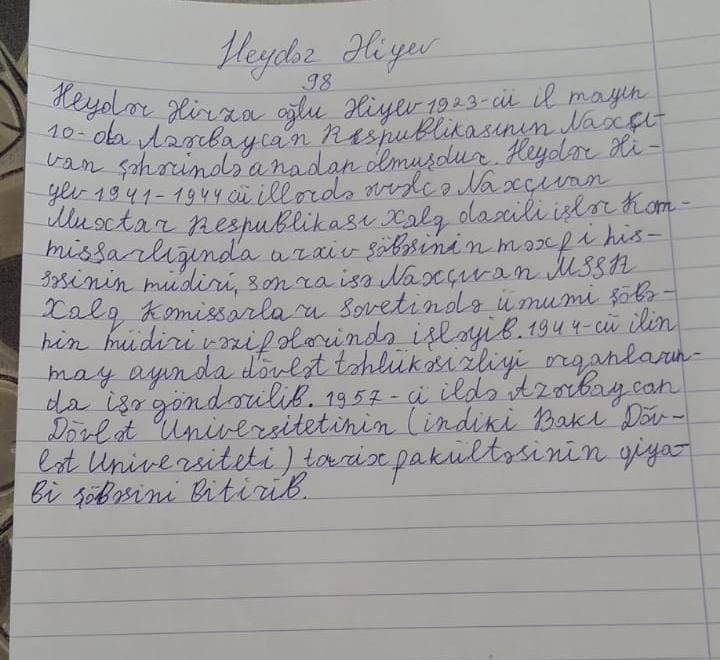 Heydər Əliyev
98
Heydər Əlirza oğlu Əliyev 1923-cü il mayın
10-da Azərbaycan Respublikasının Naxçı-
van şəhərində anadan olmuşdur. Heydər Əli-
yev 1941-1944 cü illərdə əvvəlcə Naxçıvan
Muxtar Respublikası xalq daxili işlər Kom-
missarlığında arxiv şöbəsinin məxfi his-
səsinin müdiri, sonra isə Naxçıvan MSSR
Xalq Komissarları Sovetində ümumi şöbə-
nin müdiri vəzifələrində işləyib. 1944-cü ilin
may ayında dövlət təhlükəsizliyi orqanların-
da işə göndərilib. 1957-ci ildə Azərbaycan
Dövlət Universitetinin (indiki Bakı Döv-
lət Universiteti) tarix pakültəsinin qiya-
bi şöbəsini bitirib.